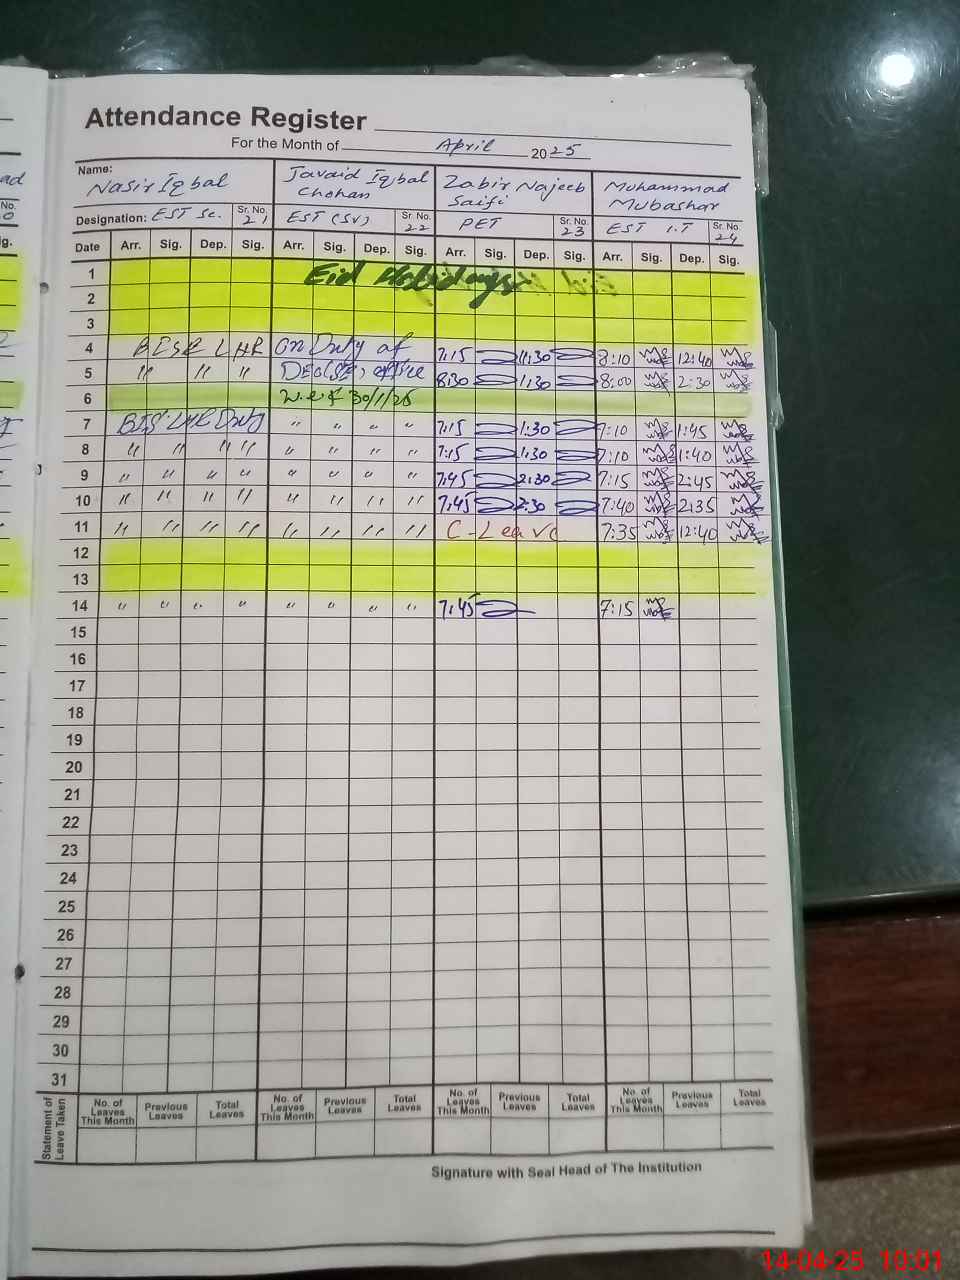 Attendance Register
For the Month of April 2025
Name: Nasir Iqbal Javaid Iqbal Chohan Zabir Najeeb Saifi Muhammad Mubashar
Designation: EST Sc. Sr. No. 21 EST (SV) Sr. No. 22 PET Sr. No. 23 EST I.T Sr. No. 24
Date Arr. Sig. Dep. Sig. Arr. Sig. Dep. Sig. Arr. Sig. Dep. Sig. Arr. Sig. Dep. Sig.
1 Eid Holidays
2
3
4 BISE LHR On Duty at 7:15 11:30 8:10 12:40
5 " " " office 8:30 1:30 8:00 2:30
6 w.e.f 30/1/25
7 BIS LHR Duty " " " " 7:15 1:30 7:10 1:45
8 " " " " " " " " 7:15 1:30 7:10 1:40
9 " " " " " " " " 7:45 2:30 7:15 2:45
10 " " " " " " " " 7:45 2:30 7:40 2:35
11 " " " " " " " " C-Leave 7:35 12:40
12
13
14 " " " " " " " " 7:45 7:15
15
16
17
18
19
20
21
22
23
24
25
26
27
28
29
30
31
Statement of Leave Taken No. of Leaves This Month Previous Leaves Total Leaves No. of Leaves This Month Previous Leaves Total Leaves No. of Leaves This Month Previous Leaves Total Leaves No. of Leaves This Month Previous Leaves Total Leaves
Signature with Seal Head of The Institution
14-04-25 10:01